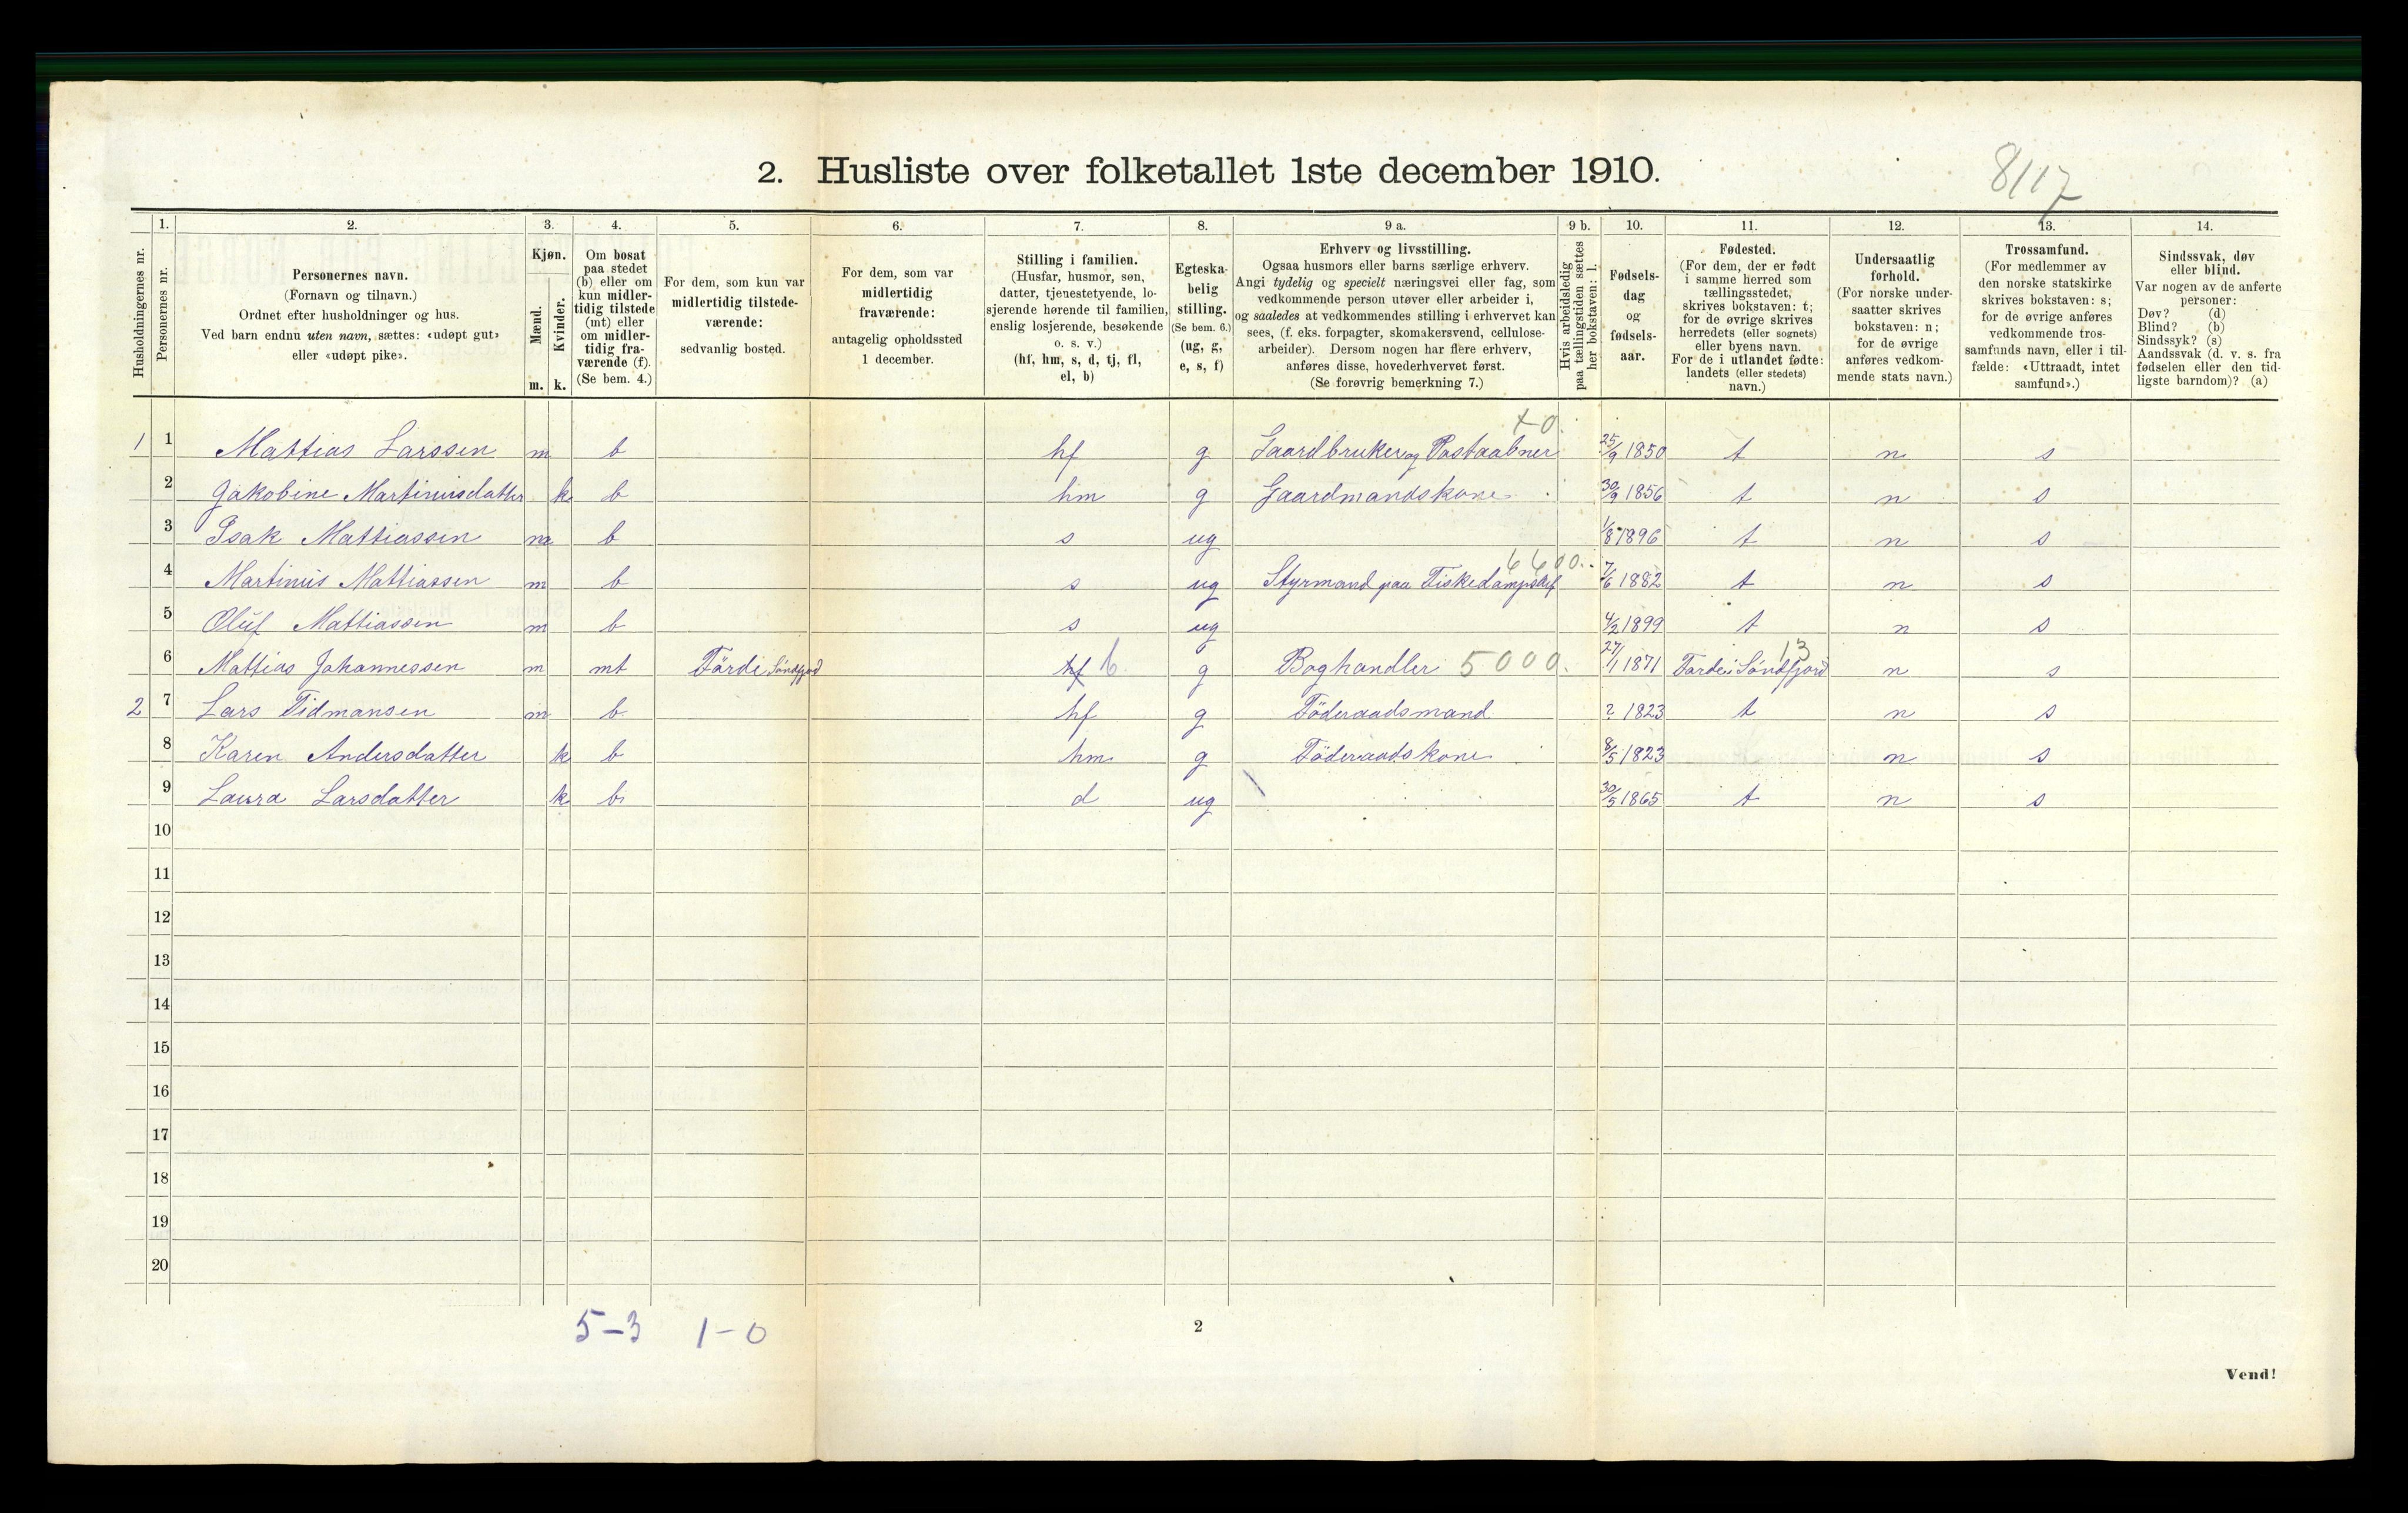 8/17
2. Husliste over folketallet 1ste december 1910.
1. 2. 3. 4. 5. 6. 7. 8. 9 a. 9 b. 10. 11. 12. 13. 14.
Husholdningernes nr.
Personernes nr.
Personernes navn.
(Fornavn og tilnavn.)
Ordnet efter husholdninger og hus.
Ved barn endnu uten navn, sættes: «udøpt gut»
eller «udøpt pike».
Kjøn.
Mænd.
Kvinder.
m. k.
Om bosat
paa stedet
(b) eller om
kun midler-
tidig tilstede
(mt) eller
om midler-
tidig fra-
værende (f).
(Se bem. 4.)
For dem, som kun var
midlertidig tilstede-
værende:
sedvanlig bosted.
For dem, som var
midlertidig
fraværende:
antagelig opholdssted
1 december.
Stilling i familien.
(Husfar, husmor, søn,
datter, tjenestetyende, lo-
sjerende hørende til familien,
enslig losjerende, besøkende
o. s. v.)
(hf, hm, s, d, tj, fl,
el, b)
Egteska-
belig
stilling.
(Se bem. 6.)
(ug, g,
e, s, f)
Erhverv og livsstilling.
Ogsaa husmors eller barns særlige erhverv.
Angi tydelig og specielt næringsvei eller fag, som
vedkommende person utøver eller arbeider i,
og saaledes at vedkommendes stilling i erhvervet kan
sees, (f. eks. forpagter, skomakersvend, cellulose-
arbeider). Dersom nogen har flere erhverv,
anføres disse, hovederhvervet først.
(Se forøvrig bemerkning 7.)
Hvis arbeidsledig
paa tællingstiden sættes
her bokstaven: l.
Fødsels-
dag
og
fødsels-
aar.
Fødested.
(For dem, der er født
i samme herred som
tællingsstedet,
skrives bokstaven: t;
for de øvrige skrives
herredets (eller sognets)
eller byens navn.
For de i utlandet fødte:
landets (eller stedets)
navn.)
Undersaatlig
forhold.
(For norske under-
saatter skrives
bokstaven: n;
for de øvrige
anføres vedkom-
mende stats navn.)
Trossamfund.
(For medlemmer av
den norske statskirke
skrives bokstaven: s;
for de øvrige anføres
vedkommende tros-
samfunds navn, eller i til-
fælde: «Uttraadt, intet
samfund».)
Sindssvak, døv
eller blind.
Var nogen av de anførte
personer:
Døv? (d)
Blind? (b)
Sindssyk? (s)
Aandssvak (d. v. s. fra
fødselen eller den tid-
ligste barndom)? (a)
1 1 Mattias Larssen m b hf g Gaardbruker og Postaabner x0. 25/9 1850 t n s
2 Jakobine Martinusdatter k b hm g Gaardmandskone 30/9 1856 t n s
3 Isak Mattiassen m b s ug 1/8 1896 t n s
4 Martinus Mattiassen m b s ug Styrmand paa Fiskedampskif 6600. 7/6 1882 t n s
5 Oluf Mattiassen m b s ug 4/2 1899 t n s
6 Mattias Johannessen m mt Førde i Søndfjord hf b g Boghandler 5000. 27/1 1871 Førde i Søndfjord 13 n s
2 7 Lars Tidmansen m b hf g Føderaadsmand ? 1823 t n s
8 Karen Andersdatter k b hm g Føderaadskone 8/5 1823 t n s
9 Laura Larsdatter k b d ug 30/5 1865 t n s
10
11
12
13
14
15
16
17
18
19
20
5-3 1-0
2
Vend!